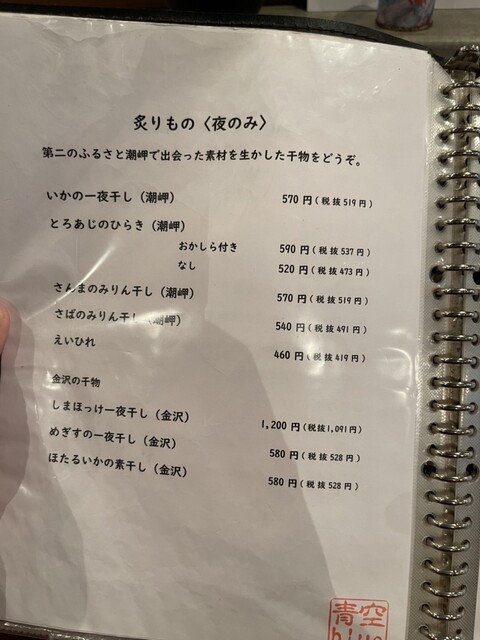 炙りもの〈夜のみ〉
第二のふるさと潮岬で出会った素材を生かした干物をどうぞ。
いかの一夜干し（潮岬） 570 円（税抜519円）
とろあじのひらき（潮岬）
おかしら付き 590 円（税抜537円）
なし 520 円（税抜473円）
さんまのみりん干し（潮岬） 570 円（税抜519円）
さばのみりん干し（潮岬） 540 円（税抜491円）
えいひれ 460 円（税抜419円）
金沢の干物
しまほっけ一夜干し（金沢） 1,200 円（税抜1,091円）
めぎすの一夜干し（金沢） 580 円（税抜528円）
ほたるいかの素干し（金沢） 580 円（税抜528円）
青空
blue